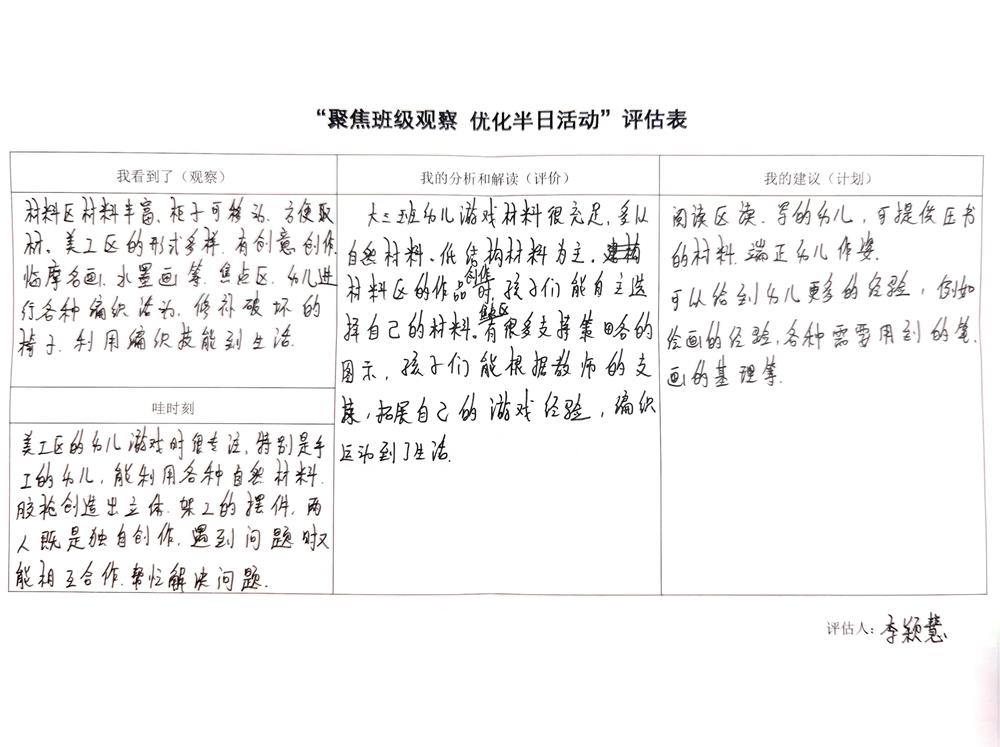 “聚焦班级观察 优化半日活动”评估表
我看到了（观察）
材料区材料丰富、柜子可移动、方便取
材、美工区的形式多样、有创意创作、
临摩名画、水墨画等.焦点区、幼儿进
行各种编织活动、修补破坏的
椅子.利用编织技能到生活.
哇时刻
美工区的幼儿游戏时很专注，特别是手
工的幼儿，能利用各种自然材料.
胶枪创造出立体.架工的摆件，两
人既是独自创作.遇到问题时又
能相互合作.帮忙解决问题.
我的分析和解读（评价）
大三班幼儿游戏材料很充足，多从
自然材料、低结构材料为主.
材料区的作品创作时，孩子们能自主选
择自己的材料.焦点区有很多支持策略的
图示，孩子们能根据教师的支
持，拓展自己的游戏经验，编织
运动到了生活.
我的建议（计划）
阅读区读、写的幼儿，可提供压书
的材料.端正幼儿作姿.
可以给到幼儿更多的经验，例如
绘画的经验，各种需要用到的笔、
画的基理等.
评估人：李颖慧